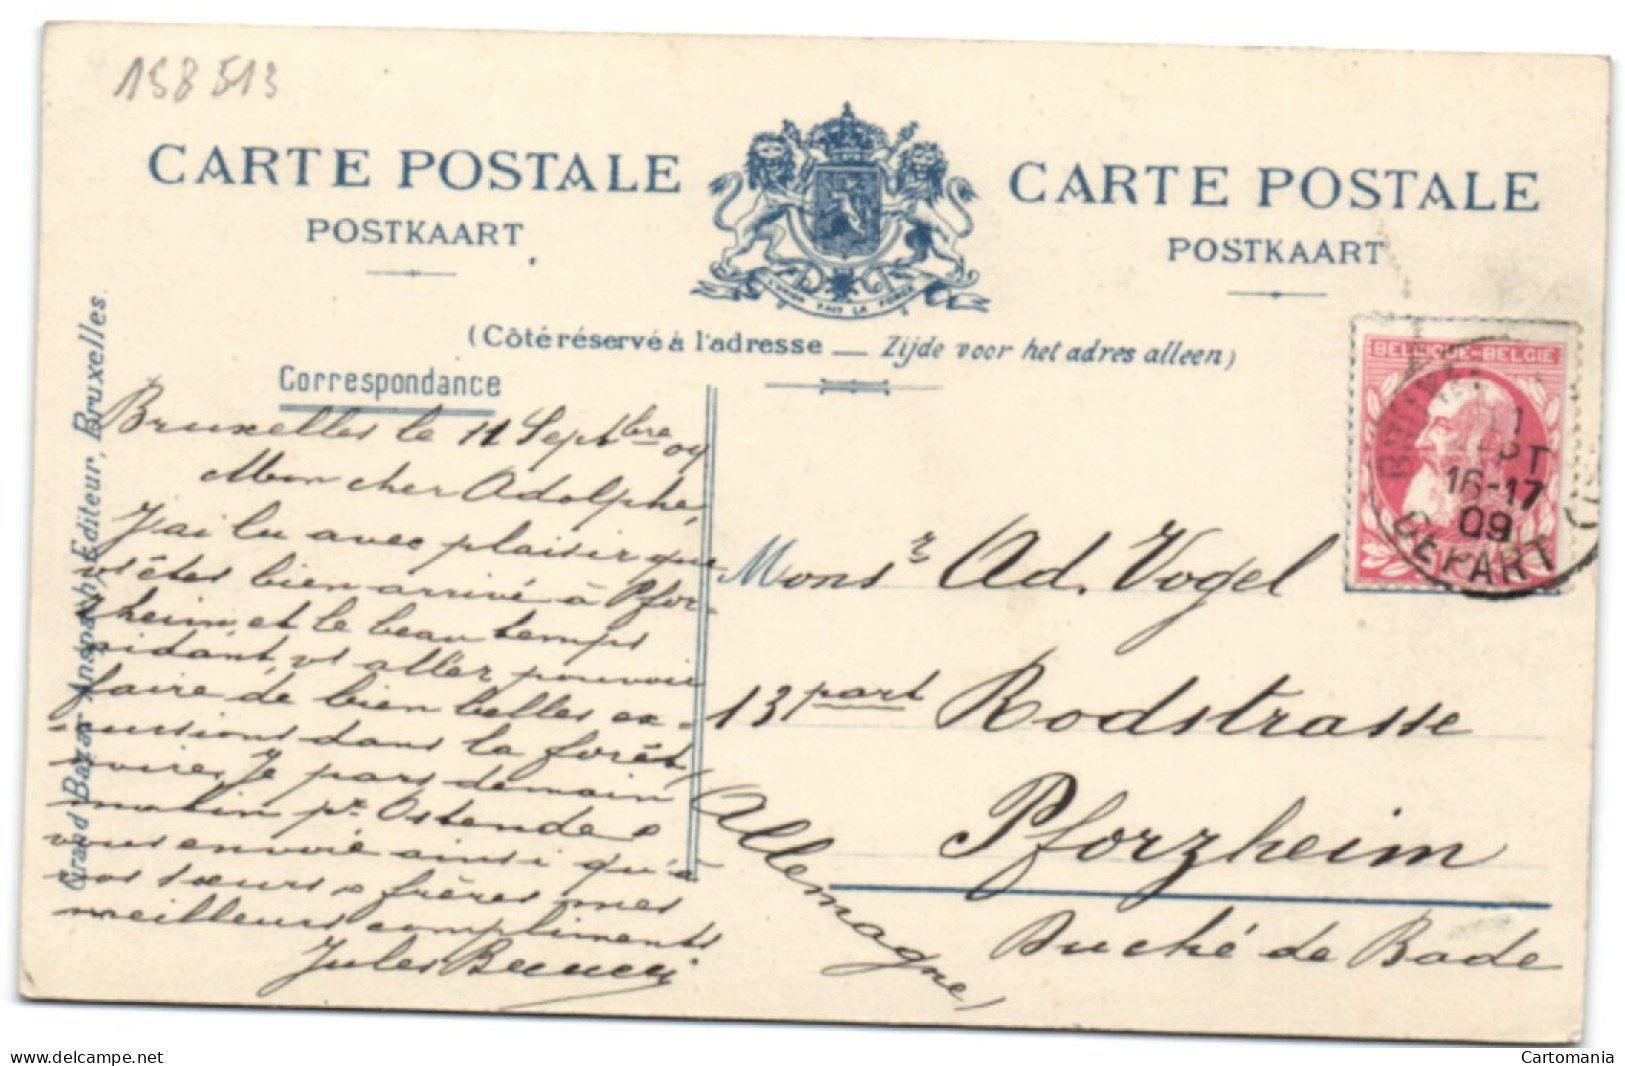 158513
CARTE POSTALE
POSTKAART
CARTE POSTALE
POSTKAART
L'UNION FAIT LA FORCE
(Côté réservé à l'adresse — Zijde voor het adres alleen)
Correspondance
Grand Bazar Anspach, Editeur, Bruxelles.
Bruxelles le 11 Septbre 09
Mon cher Adolphe,
J'ai lu avec plaisir que
vs êtes bien arrivé à Pfor-
zheim, et le beau temps
aidant, vs aller pouvoir
faire de bien belles ex-
cursions dans la forêt
noire, Je pars demain
matin pr Ostende &
vous envoie ainsi qu'à
vos sœurs & frères mes
meilleurs compliments
Jules
BELGIQUE-BELGIE
11
SEPT
16-17
09
DEPART
Monsr Ad. Vogel
13 part Rodstrasse
Pforzheim
Duché de Bade
(Allemagne)
www.delcampe.net
Cartomania